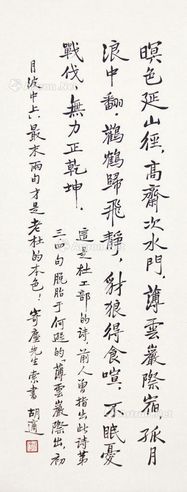 暝色延山徑，高齋次水門，薄雲巖際宿，孤月
浪中翻，鸛鶴歸飛靜，豺狼得食喧，不眠憂
戰伐，無力正乾坤．
這是杜工部的詩，前人曾指出此詩第
三四句脫胎于何遜的薄雲巖際出，初
月波中上，最末兩句才是老杜的本色！
寄塵先生索書 胡適